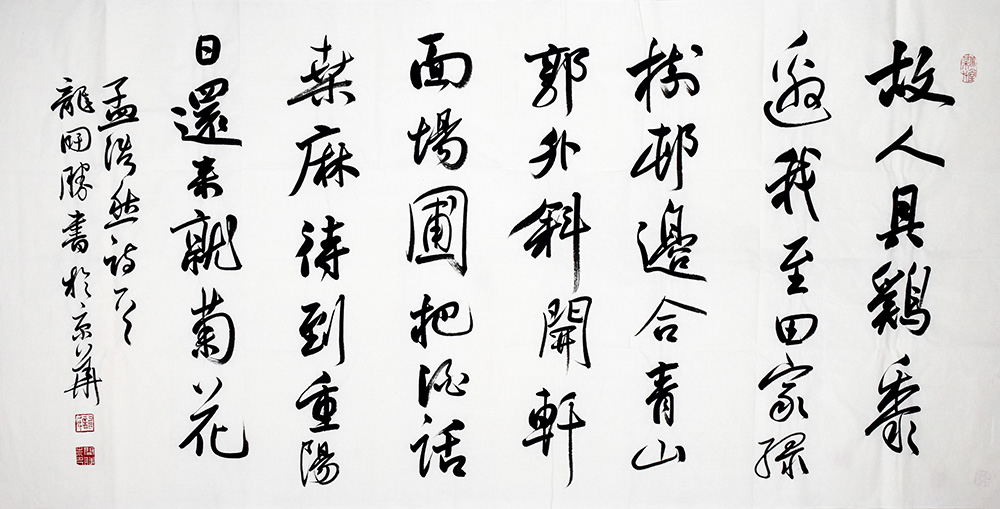 故人具鷄黍
邀我至田家緑
樹邨邊合青山
郭外斜開軒
面場圃把酒話
桑麻待到重陽
日還来就菊花
孟浩然詩一首
龍開勝書於京華